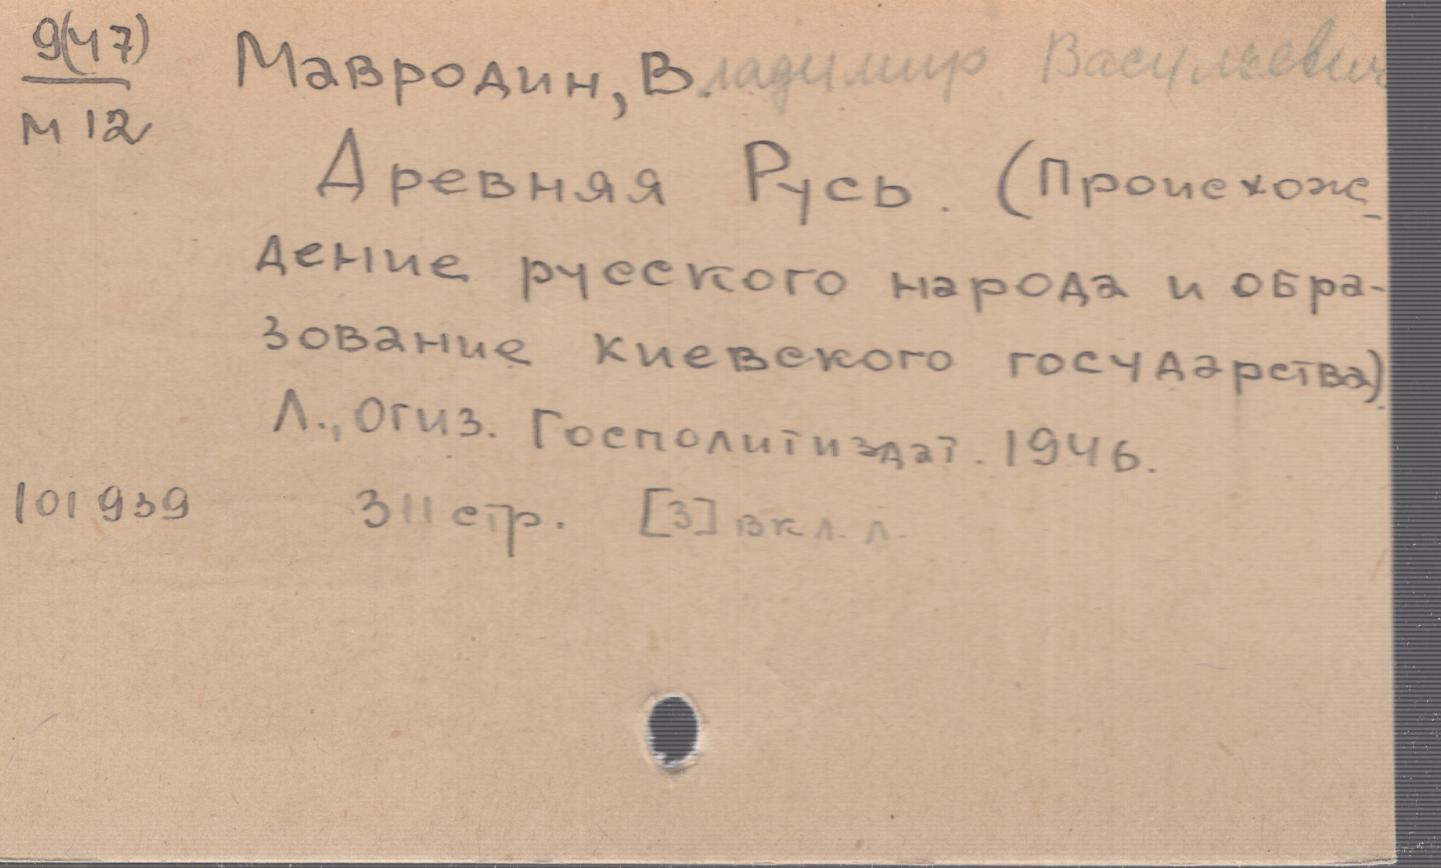 9(47)
М 12
Мавродин, Владимир Васильевич
Древняя Русь. (Происхож-
дение русского народа и обра-
зование киевского государства).
Л., Огиз. Госполитиздат. 1946.
101939 311 стр. [3] вкл. л.